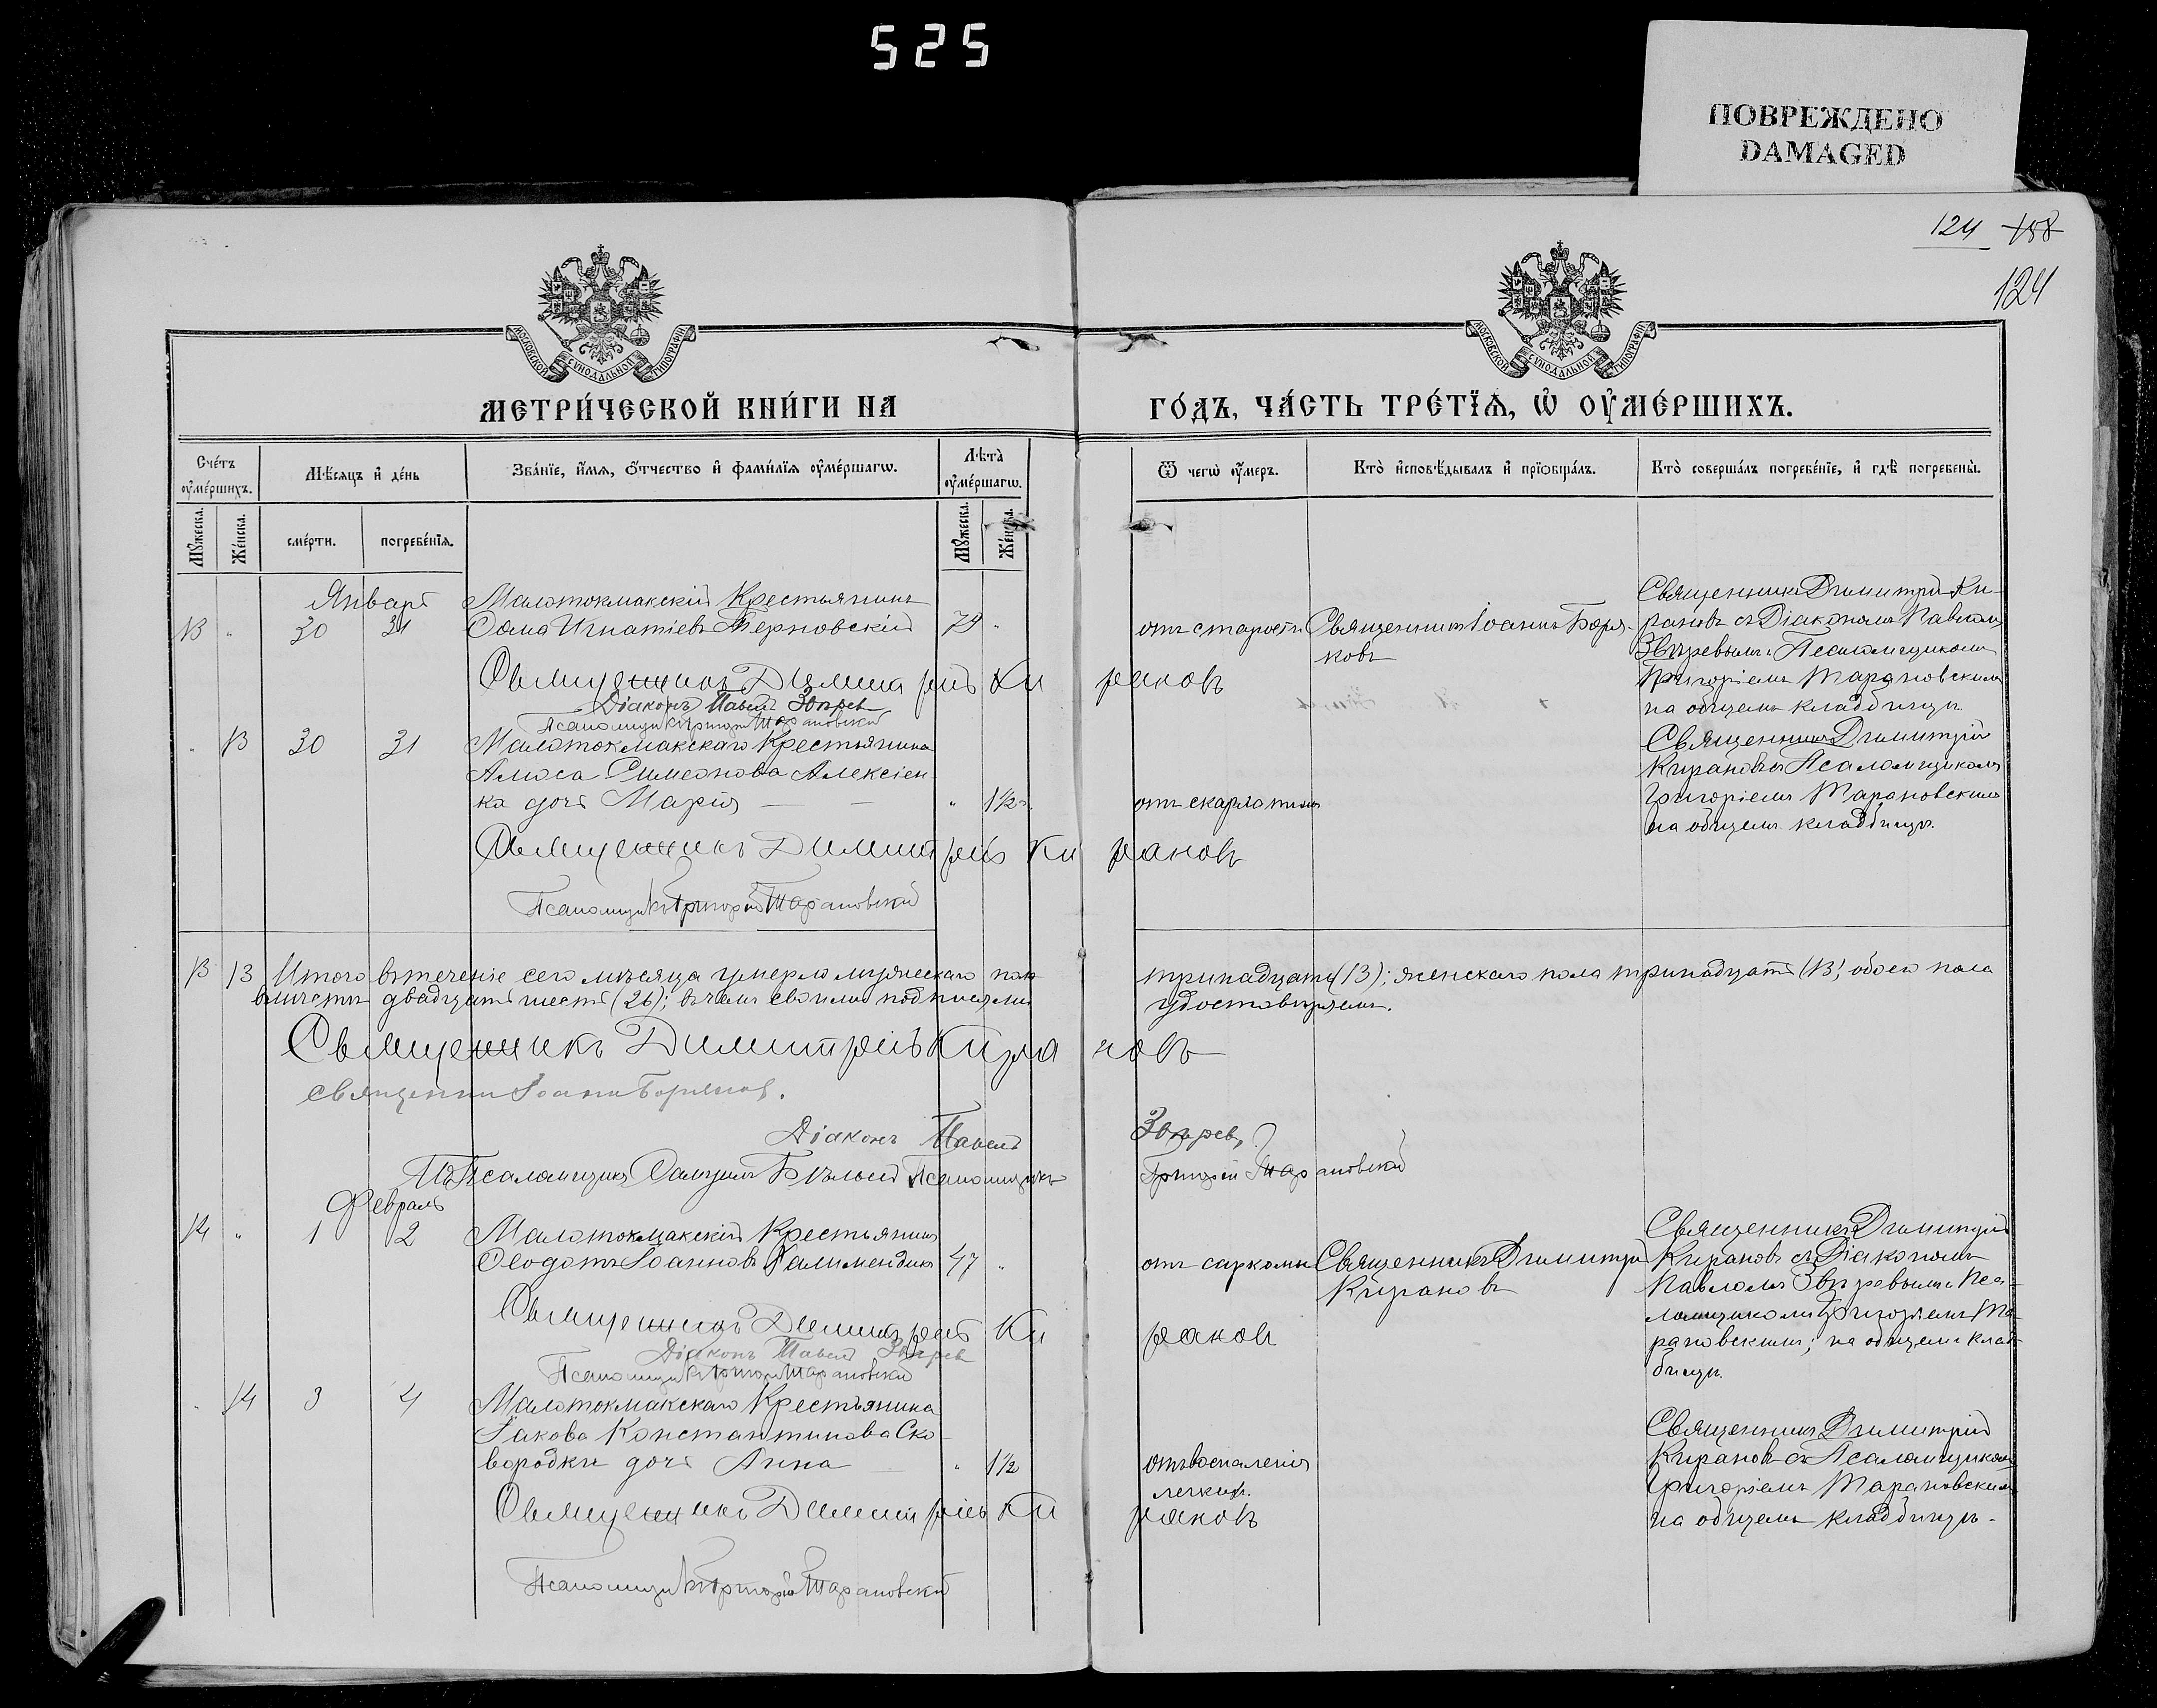 525
ПОВРЕЖДЕНО
DAMAGED
124 158
124
МОСКОВСКОЙ СУНОДАЛЬНОЙ ТИПОГРАФІИ
МОСКОВСКОЙ СУНОДАЛЬНОЙ ТИПОГРАФІИ
МЕТРИ́ЧЕСКОЙ КНИ́ГИ НА ГО́ДЪ, ЧА́СТЬ ТРЕ́ТІѦ, Ѡ ОУ҆МЕ́РШИХЪ.
Сче́тъ оу҆ме́ршихъ.
Мѣ́сѧцъ и҆ де́нь
Зва́нїе, и҆́мѧ, ѻ҆́тчество и҆ фами́лїѧ оу҆ме́ршагѡ.
Лѣ́та оу҆ме́ршагѡ.
Ѿ чегѡ̀ оу҆́меръ.
Кто̀ и҆сповѣ́дывалъ и҆ прїѡбща́лъ.
Кто̀ соверша́лъ погребе́нїе, и҆ гдѣ̀ погребены̀.
Мꙋ́жеска.
Же́нска.
сме́рти.
погребе́нїѧ.
Мꙋ́жеска.
Же́нска.
Январь
Малотокмакскій Крестьянинъ
13 " 30 31 Ѳома Игнатіевъ Терновскій 79 "
отъ старости
Священникъ Іоаннъ Боря-
ковъ
Священникъ Димитрій Ки-
рановъ съ Діакономъ Павломъ
Звѣревымъ и Псаломщикомъ
Григоріемъ Тарановскимъ
на общемъ кладбищѣ.
Священникъ Димитрій Кирановъ
Діаконъ Павелъ Звѣрев
Псаломщикъ Григорій Тарановскій
" 13 30 31 Малотокмакскаго Крестьянина
Амоса Симеонова Алексіен-
ка дочь Марія — — " 1½ г.
отъ скарлатины
Священникъ Димитрій
Кирановъ съ Псаломщикомъ
Григоріемъ Тарановскимъ
на общемъ кладбищѣ.
Священникъ Димитрій Кирановъ
Псаломщикъ Григорій Тарановскій
13 13 Итого въ теченіе сего мѣсяца умерло мужескаго пола тринадцать (13); женскаго пола тринадцать (13), обоего пола
вмѣстѣ двадцать шесть (26); въ чемъ своими подписями удостовѣряемъ.
Священникъ Димитрій Кирановъ
Священникъ Іоаннъ Боряков.
Діаконъ Павелъ Звѣрев,
Псаломщикъ Самуилъ Бѣлый Псаломщикъ Григорій Тарановскій
Февраль
14 " 1 2 Малотокмакскій Крестьянинъ
Ѳеодотъ Іоанновъ 47 "
отъ саркомы
Священникъ Димитрій
Кирановъ
Священникъ Димитрій
Кирановъ съ Діакономъ
Павломъ Звѣревымъ и Пса-
ломщикомъ Григоріемъ Та-
рановскимъ; на общемъ клад-
бищѣ.
Священникъ Димитрій Киранов
Діаконъ Павелъ Звѣрев
Псаломщикъ Григорій Тарановскій
" 14 3 4 Малотокмакскаго Крестьянина
Іакова Константинова Ско-
вородки дочь Анна — " 1½
отъ воспаленія
легкихъ.
Священникъ Димитрій
Кирановъ съ Псаломщикомъ
Григоріемъ Тарановскимъ
на общемъ кладбищѣ.
Священникъ Димитрій Кирановъ
Псаломщикъ Григорій Тарановскій